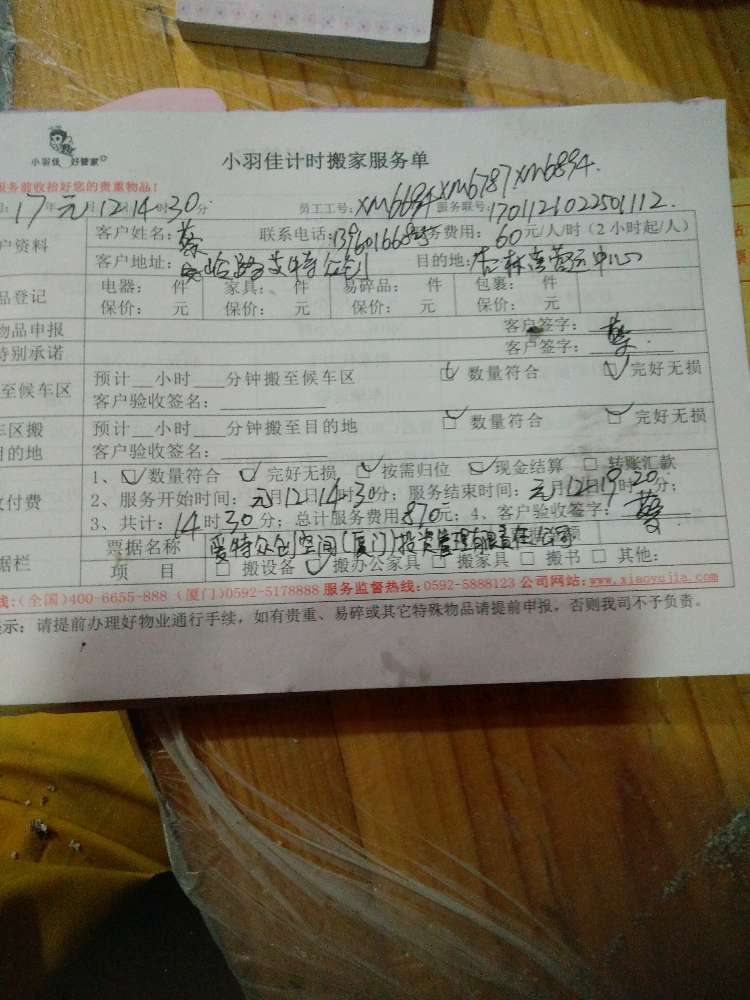 小羽佳 好管家
小羽佳计时搬家服务单
服务前收拾好您的贵重物品！
17年元月12日14时30分 员工工号：XM6694 XM6787 XM6894 服务联号：1701121022501112
户资料 客户姓名：蔡 联系电话： 服务费用：60元/人/时（2小时起/人）
客户地址： 艾特众创 目的地：杏林 营运中心
品登记 电器： 件 家具： 件 易碎品： 件 包裹： 件
保价： 元 保价： 元 保价： 元 保价： 元
物品申报 客户签字：蔡
特别承诺 客户签字：
至候车区 预计__小时___分钟搬至候车区 ☑ 数量符合 ☑ 完好无损
客户验收签名：
车区搬 预计__小时___分钟搬至目的地 ☑ 数量符合 ☑ 完好无损
目的地 客户验收签名：
付费 1、☑ 数量符合 ☑ 完好无损 ☑ 按需归位 ☑ 现金结算 □ 转账汇款
2、服务开始时间：元月12日14时30分；服务结束时间：元月12日19时20分；
3、共计：14时30分；总计服务费用870元；4、客户验收签字：蔡
据栏 票据名称 爱特众创空间(厦门)投资管理有限责任公司
项 目 □ 搬设备 ☑ 搬办公家具 □ 搬家具 □ 搬书 □ 其他：
线：(全国)400-6655-888 (厦门)0592-5178888 服务监督热线：0592-5888123 公司网站：www.xiaoyujia.com
提示：请提前办理好物业通行手续，如有贵重、易碎或其它特殊物品请提前申报，否则我司不予负责。